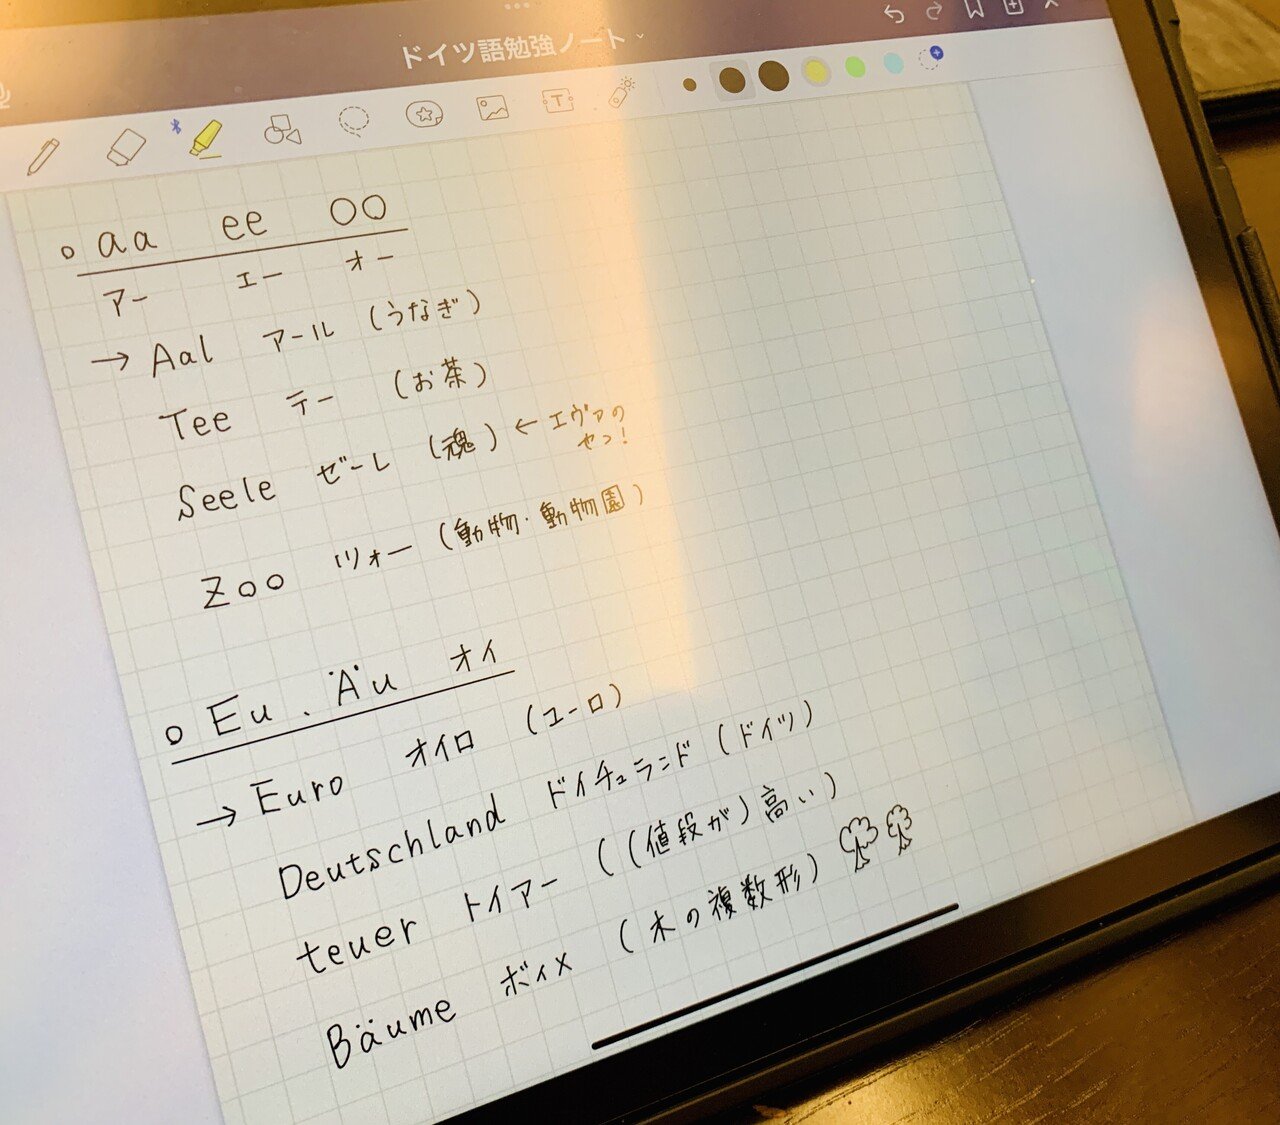 ドイツ語勉強ノート
T
aa ee OO
アー エー オー
→ Aal アール (うなぎ)
Tee テー (お茶)
Seele ゼーレ (魂) ← エヴァの
ヤツ!
Zoo ツォー (動物・動物園)
Eu . Äu オイ
→ Euro オイロ (ユーロ)
Deutschland ドイチュランド (ドイツ)
teuer トイアー ((値段が)高い)
Bäume ボイメ (木の複数形)